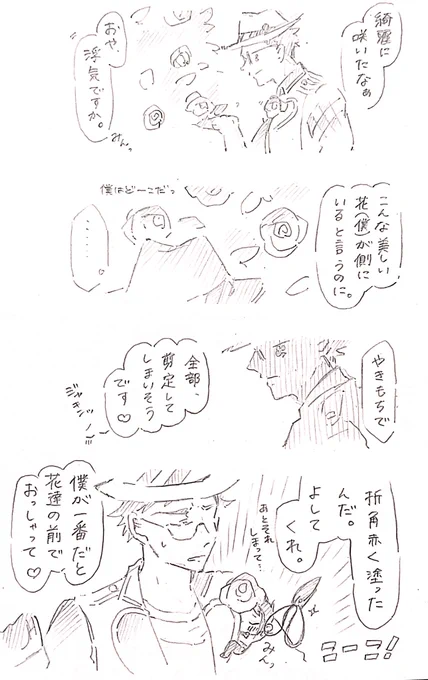 綺麗に
咲いたなぁ
おや、
浮気ですか。
みんっ
こんな美しい
花(僕)が側に
いると言うのに。
僕はどーこだっ
……。
やきもちで
全部、
剪定して
しまいそう
です♡
ジャキンッ
折角赤く塗った
んだ。
よして
くれ。
あとそれ
しまって…
僕が一番だと
花達の前で
おっしゃって♡
みんっ
コーコ!